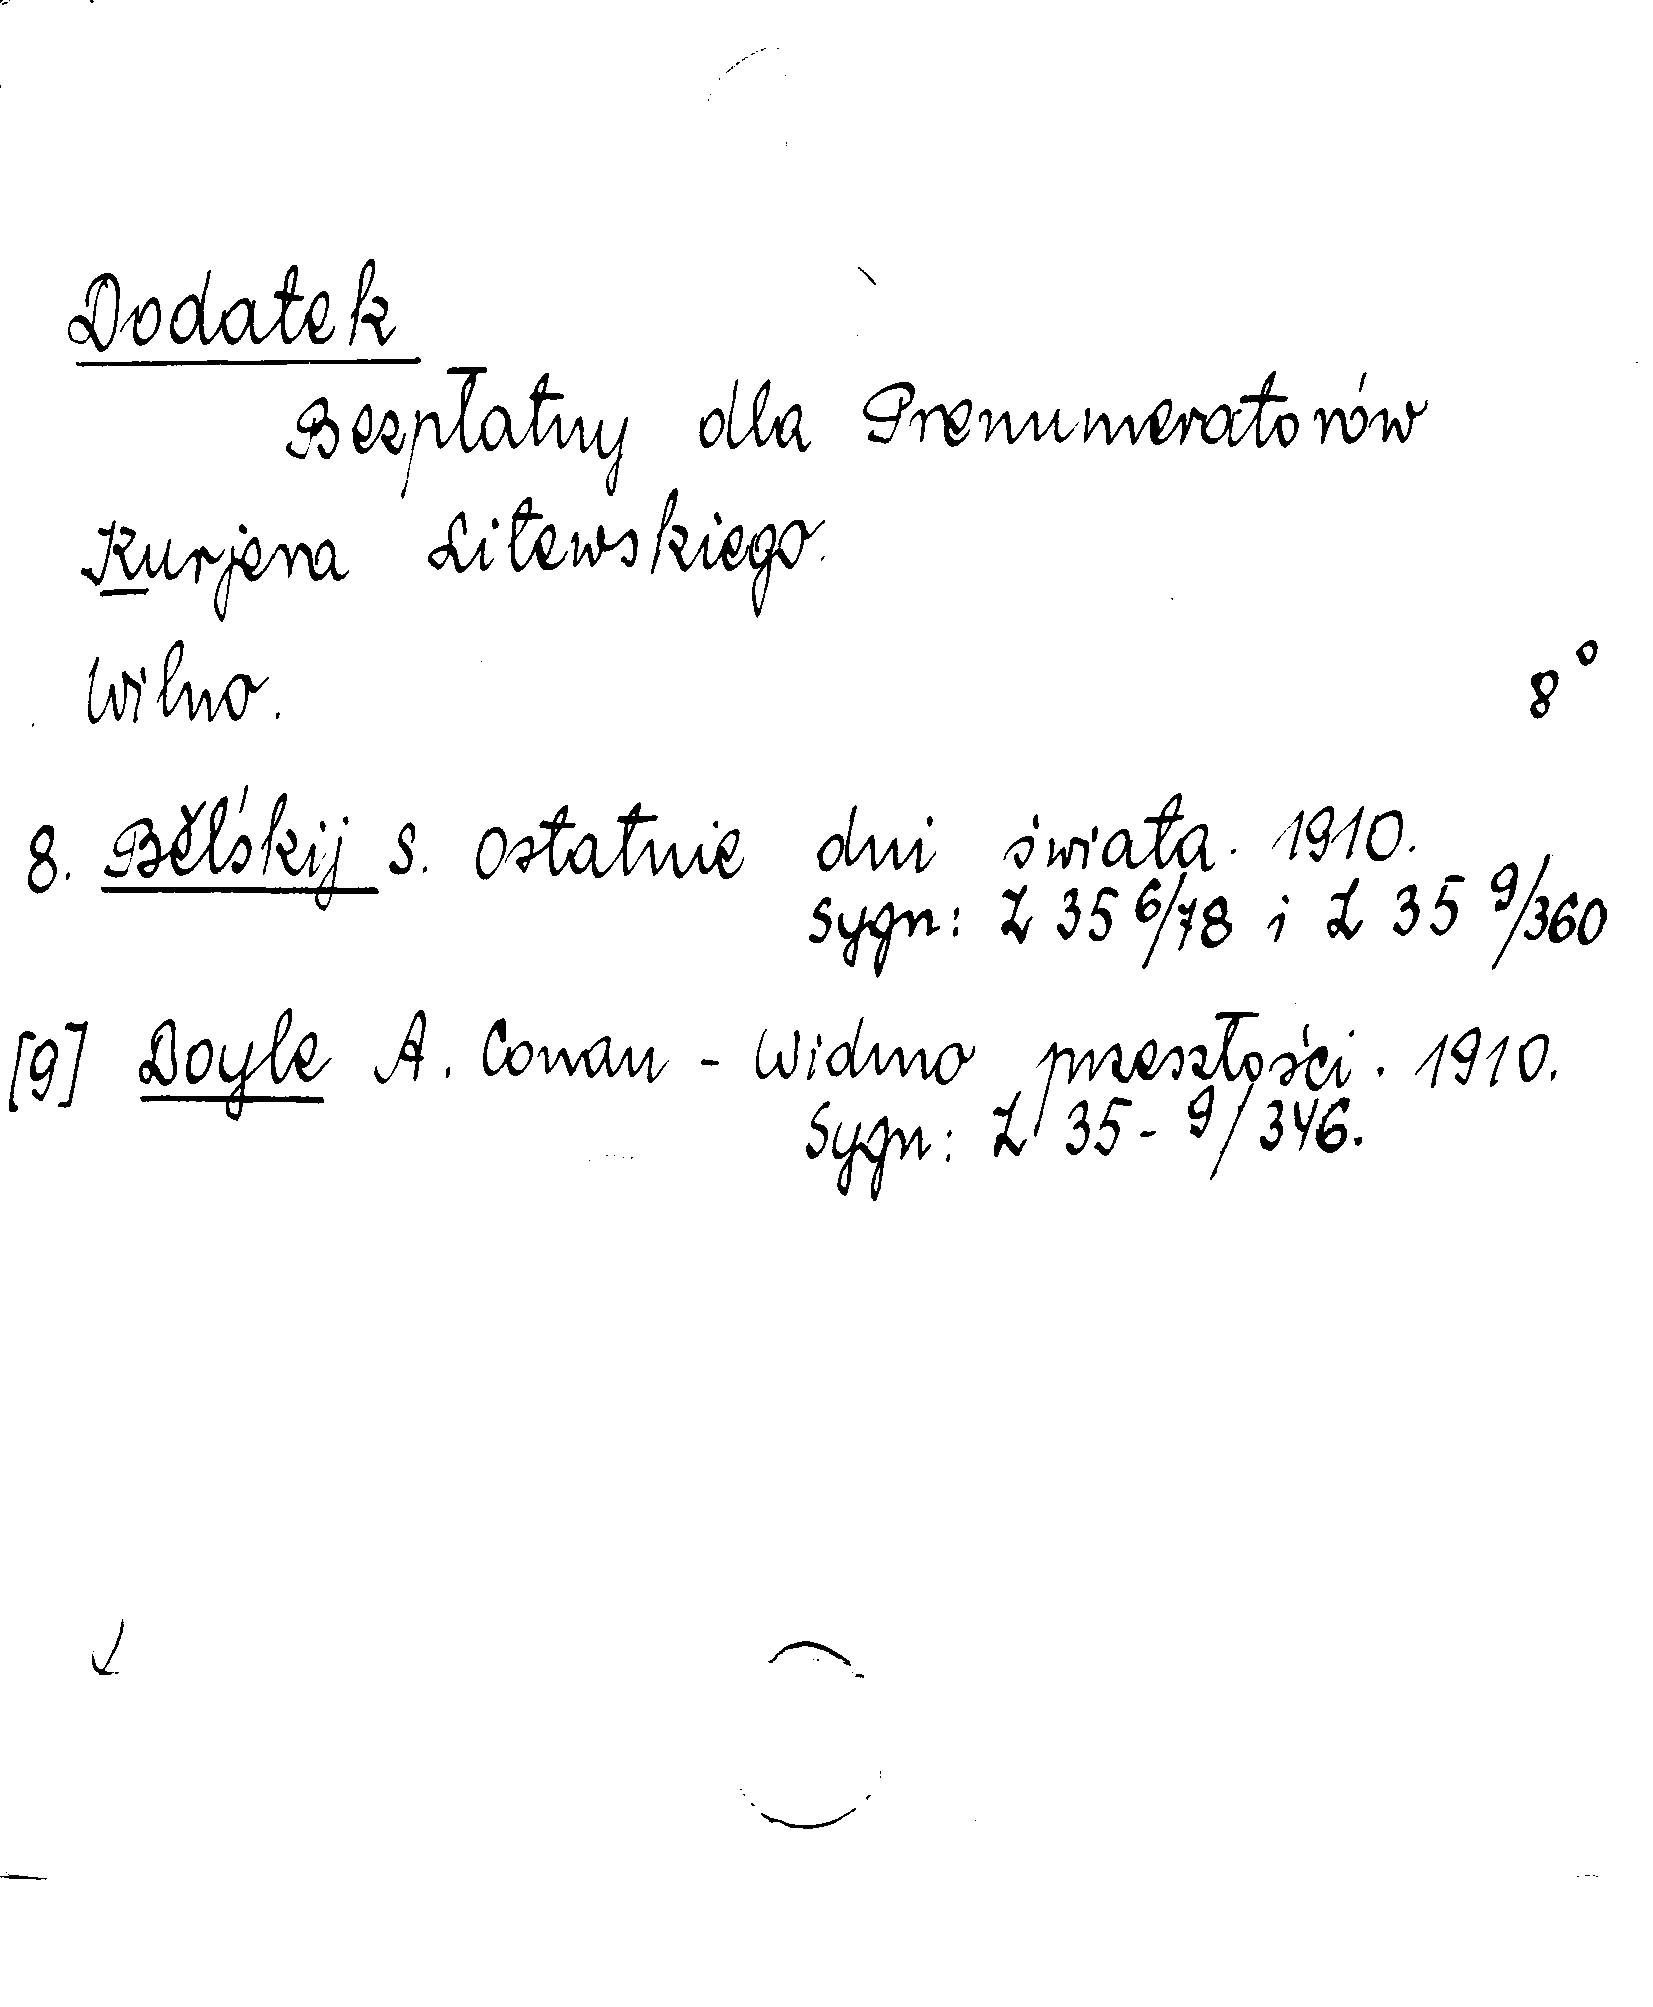 Dodatek
Bezpłatny dla Prenumeratorów
Kurjera Litewskiego.
Wilno. 8°
8. Bělśkij S. Ostatnie dni świata. 1910.
Sygn: Z 35 6/78 i Z 35 9/360
[9] Doyle A. Conan - Widmo przeszłości. 1910.
Sygn: Z 35 - 9/346.